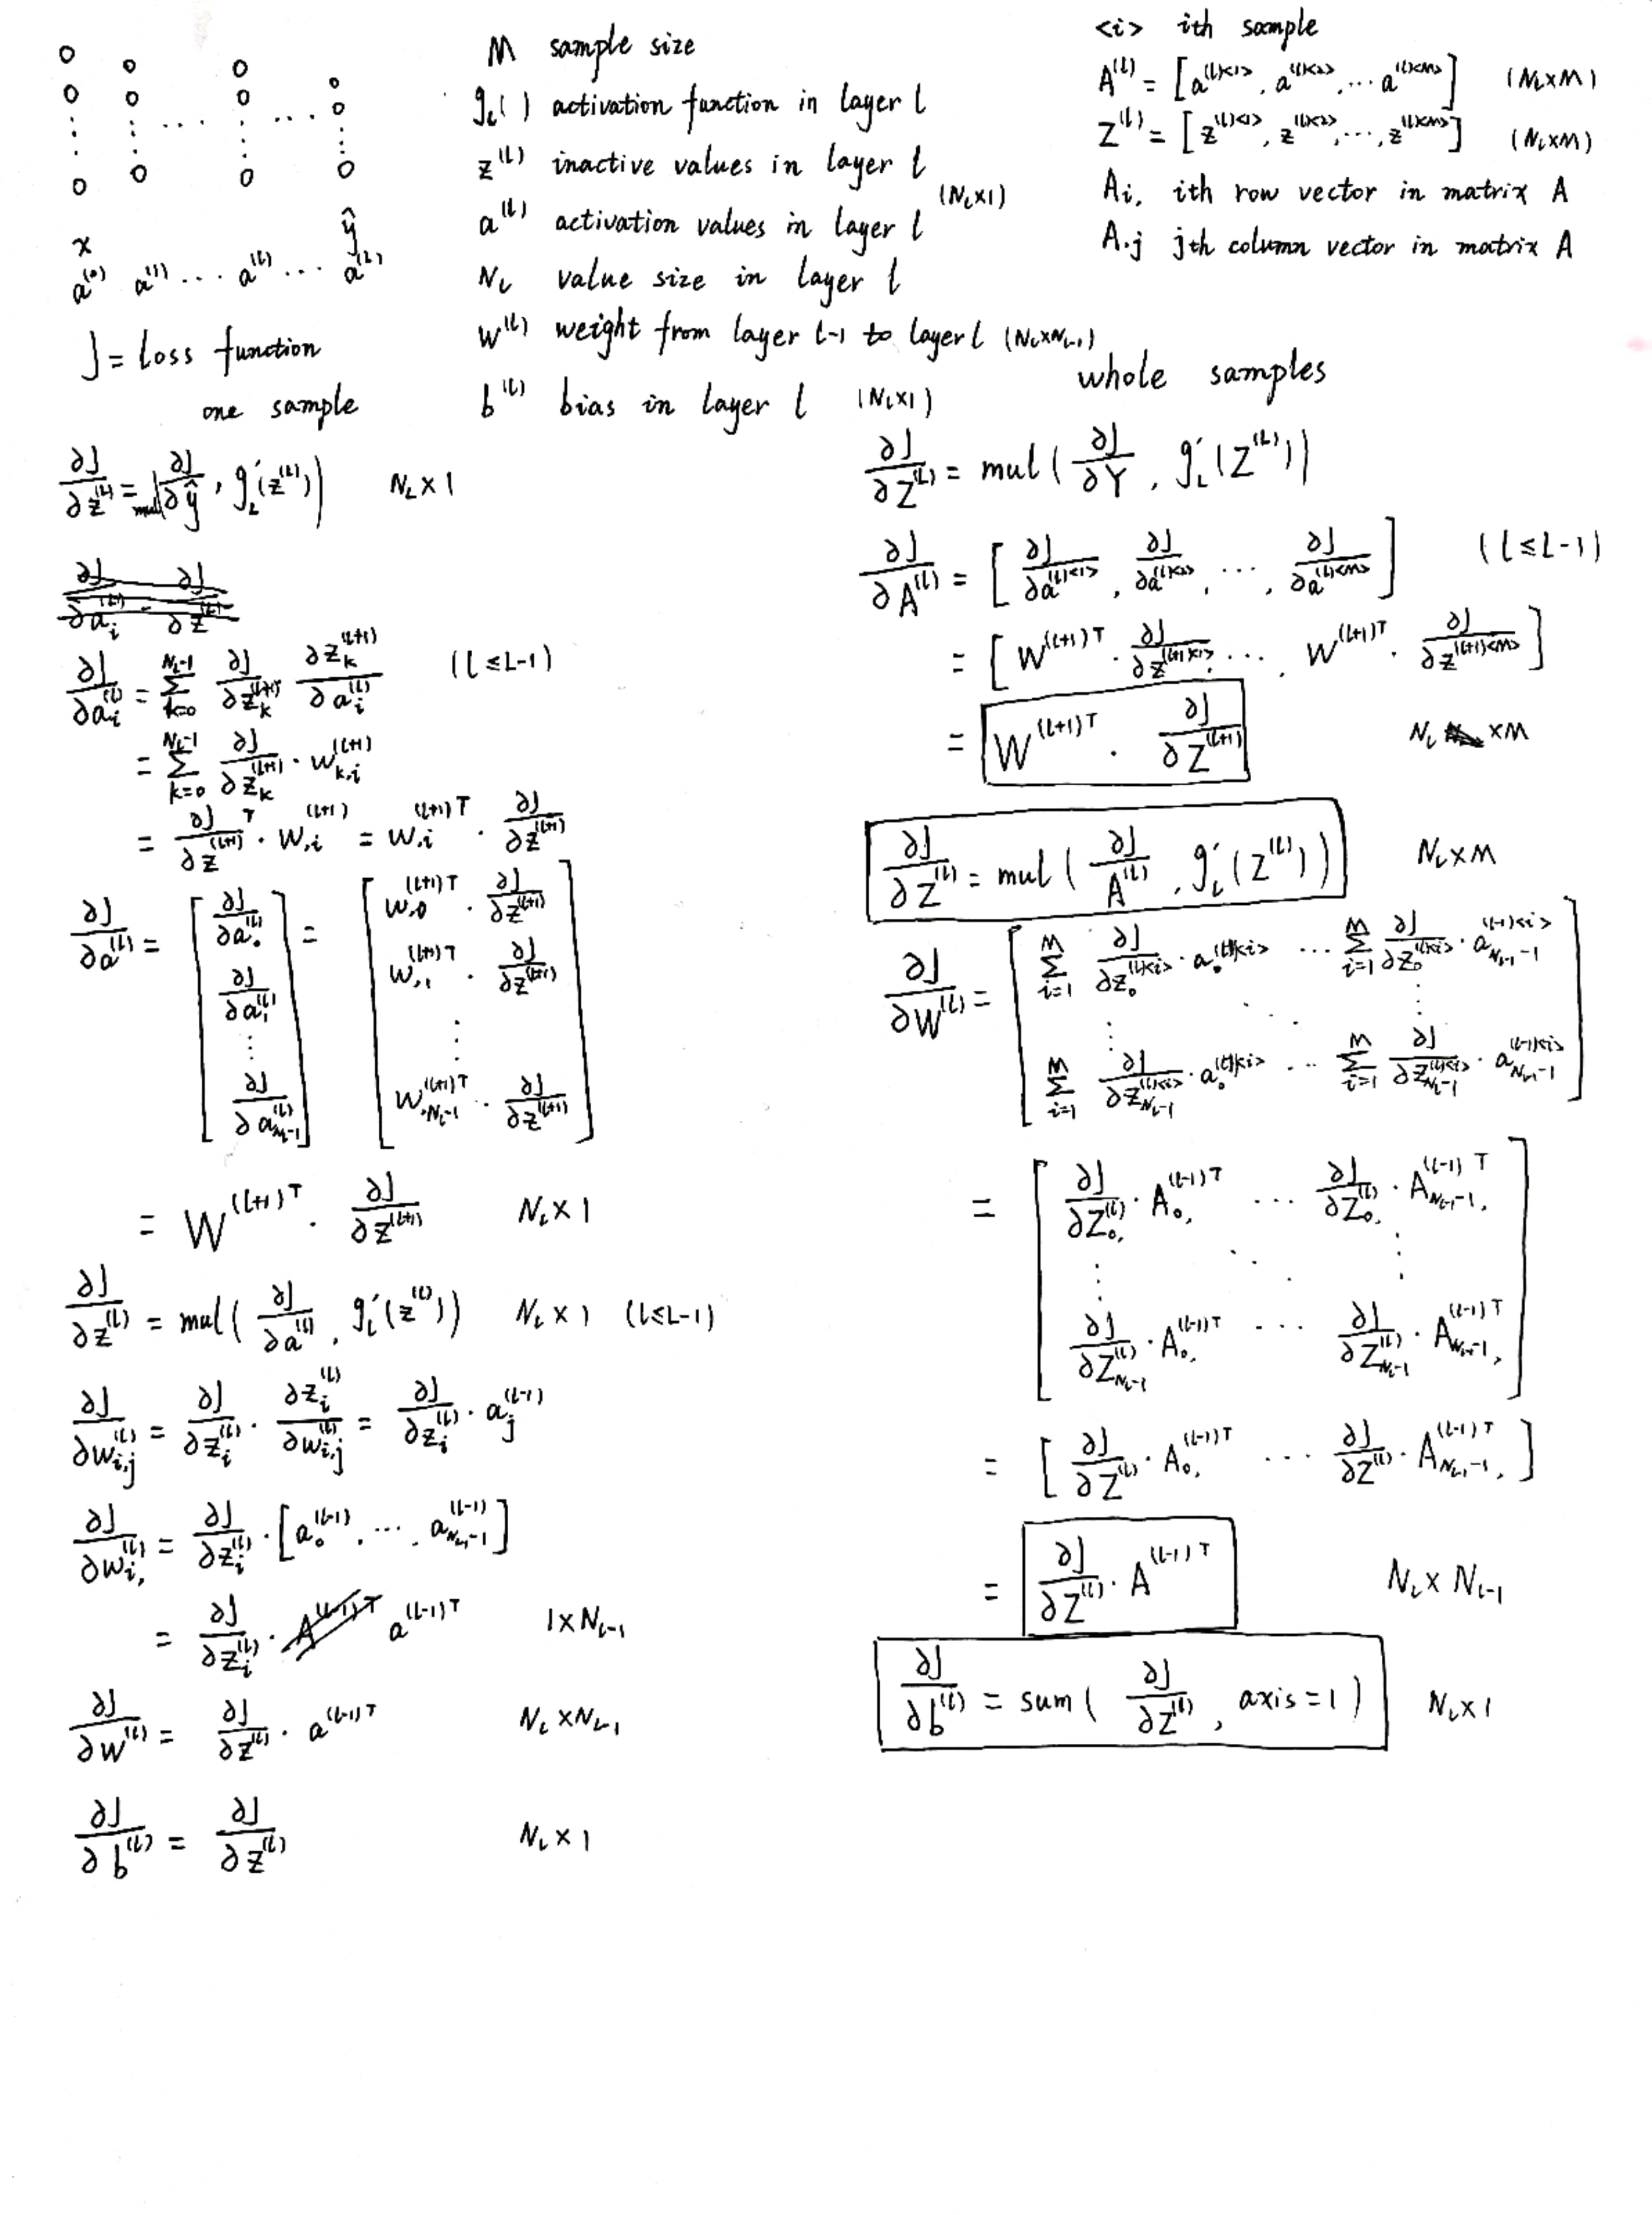 M sample size
g_L( ) activation function in layer l
z^(l) inactive values in layer l
a^(l) activation values in layer l (N_l×1)
N_l value size in layer l
w^(l) weight from layer l-1 to layer l (N_l×N_{l-1})
b^(l) bias in layer l (N_l×1)
<i> ith sample
A^(l) = [a^(l)<1>, a^(l)<2>, ... a^(l)<M>] (N_l×M)
Z^(l) = [z^(l)<1>, z^(l)<2>, ..., z^(l)<M>] (N_l×M)
A_i, ith row vector in matrix A
A.j jth column vector in matrix A
x ŷ
a^(0) a^(1) ... a^(l) ... a^(L)
J = Loss function
one sample
∂J/∂z^(L) = mul(∂J/∂ŷ, g'_L(z^(L))) N_L×1
∂J/∂a_i^(l) = Σ_{k=0}^{N_l-1} ∂J/∂z_k^(l+1) ∂z_k^(l+1)/∂a_i^(l) (l≤L-1)
= Σ_{k=0}^{N_l-1} ∂J/∂z_k^(l+1) · w_{k,i}^(l+1)
= ∂J/∂z^(l+1)^T · w_{,i}^(l+1) = w_{,i}^(l+1)T · ∂J/∂z^(l+1)
∂J/∂a^(l) = [∂J/∂a_0^(l) ∂J/∂a_1^(l) ⋮ ∂J/∂a_{N_l-1}^(l)] = [w_{,0}^(l+1)T · ∂J/∂z^(l+1) w_{,1}^(l+1)T · ∂J/∂z^(l+1) ⋮ w_{.N_l-1}^(l+1)T · ∂J/∂z^(l+1)]
= W^(l+1)T · ∂J/∂z^(l+1) N_l×1
∂J/∂z^(l) = mul(∂J/∂a^(l), g'_l(z^(l))) N_l×1 (l≤L-1)
∂J/∂w_{i,j}^(l) = ∂J/∂z_i^(l) · ∂z_i^(l)/∂w_{i,j}^(l) = ∂J/∂z_i^(l) · a_j^(l-1)
∂J/∂w_{i,}^(l) = ∂J/∂z_i^(l) · [a_0^(l-1), ..., a_{N_{l-1}-1}^(l-1)]
= ∂J/∂z_i^(l) · a^(l-1)T 1×N_{l-1}
∂J/∂w^(l) = ∂J/∂z^(l) · a^(l-1)T N_l×N_{l-1}
∂J/∂b^(l) = ∂J/∂z^(l) N_l×1
whole samples
∂J/∂Z^(L) = mul(∂J/∂Y, g'_L(Z^(L)))
∂J/∂A^(l) = [∂J/∂a^(l)<1>, ∂J/∂a^(l)<2>, ..., ∂J/∂a^(l)<M>] (l≤L-1)
= [W^(l+1)T · ∂J/∂z^(l+1)<1>, ..., W^(l+1)T · ∂J/∂z^(l+1)<M>]
= W^(l+1)T · ∂J/∂Z^(l+1) N_l×M
∂J/∂Z^(l) = mul(∂J/A^(l), g'_l(Z^(l))) N_l×M
∂J/∂W^(l) = [Σ_{i=1}^M ∂J/∂z_0^(l)<i> · a_0^(l)<i> ... Σ_{i=1}^M ∂J/∂z_0^(l)<i> · a_{N_{l-1}-1}^(l-1)<i>
⋮ ⋱ ⋮
Σ_{i=1}^M ∂J/∂z_{N_l-1}^(l)<i> · a_0^(l)<i> ... Σ_{i=1}^M ∂J/∂z_{N_l-1}^(l)<i> · a_{N_{l-1}-1}^(l-1)<i>]
= [∂J/∂Z_{0,}^(l) · A_{0,}^(l-1)T ... ∂J/∂Z_{0,}^(l) · A_{N_{l-1}-1,}^(l-1)T
⋮ ⋱ ⋮
∂J/∂Z_{N_l-1}^(l) · A_{0,}^(l-1)T ... ∂J/∂Z_{N_l-1}^(l) · A_{N_{l-1}-1,}^(l-1)T]
= [∂J/∂Z^(l) · A_{0,}^(l-1)T ... ∂J/∂Z^(l) · A_{N_{l-1}-1,}^(l-1)T]
= ∂J/∂Z^(l) · A^(l-1)T N_l×N_{l-1}
∂J/∂b^(l) = sum(∂J/∂Z^(l), axis=1) N_l×1